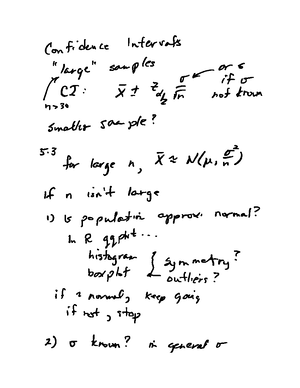 Confidence Intervals
"large" samples
n>30 CI: X̄ ± z_α/2 σ/√n ← or s if σ not known
smaller sample?
5.3 for large n, X̄ ≈ N(μ, σ²/n)
if n isn't large
1) Is population approx. normal?
In R qqplot...
histogram { symmetry?
boxplot { outliers?
if ≈ normal, keep going
if not, stop
2) σ known? in general σ